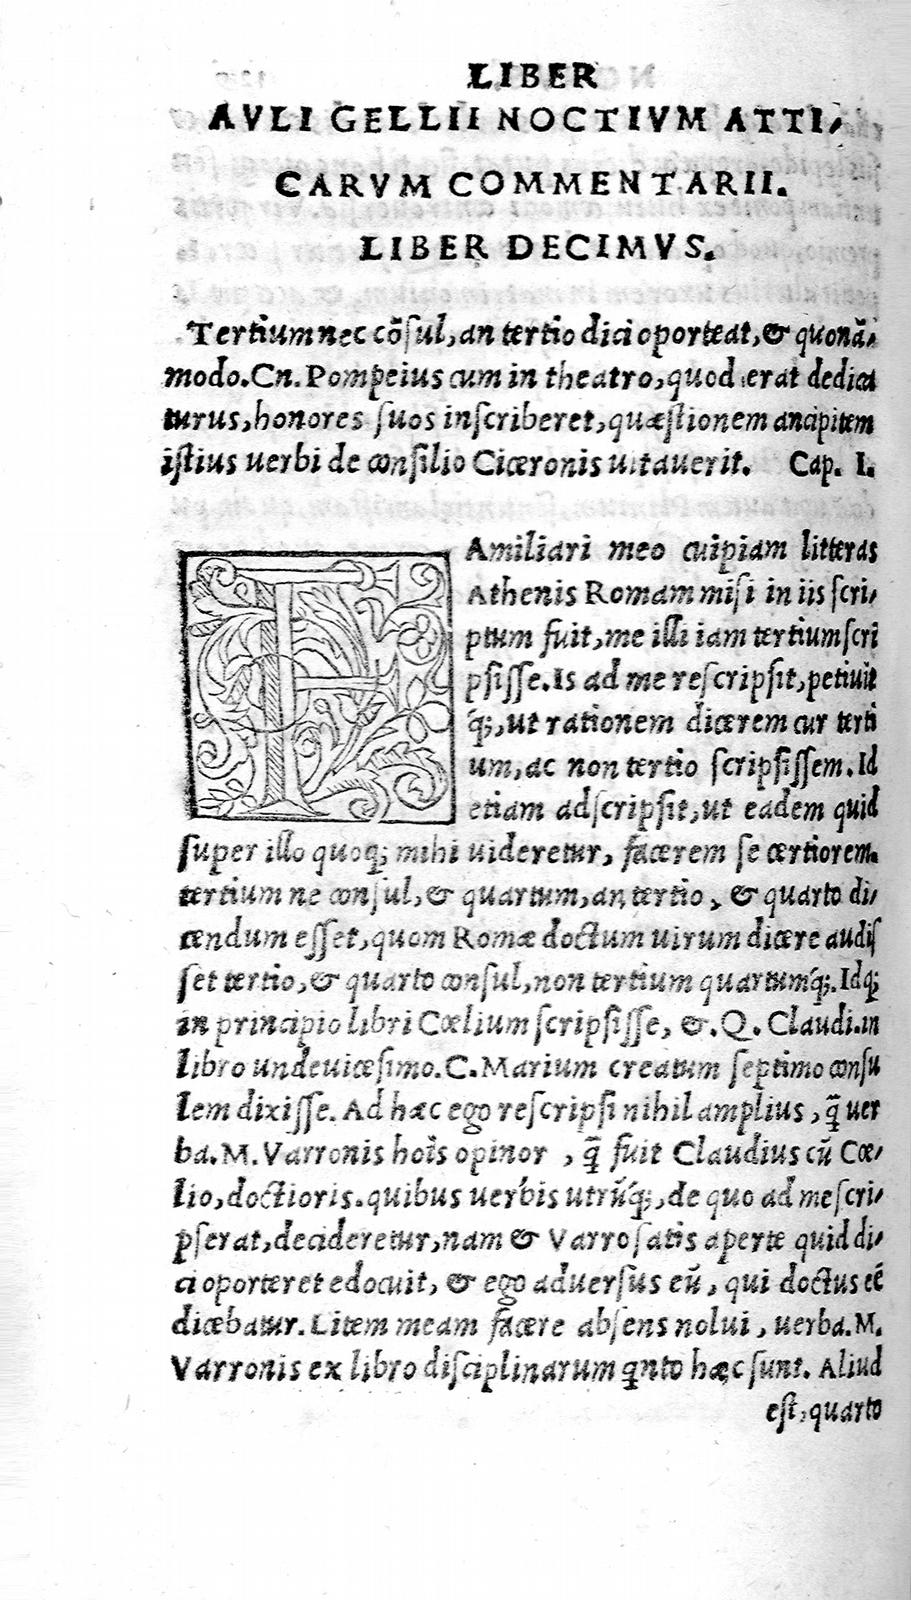 LIBER
AVLI GELLII NOCTIVM ATTI,
CARVM COMMENTARII.
LIBER DECIMVS.
Tertium nec cõſul, an tertio dici oporteat, & quonã,
modo. Cn. Pompeius cum in theatro, quod erat dedica
turus, honores ſuos inſcriberet, quæſtionem ancipitem
iſtius uerbi de conſilio Ciceronis uitauerit. Cap. I.
FAmiliari meo cuipiam litteras
Athenis Romam miſi in iis ſcri,
ptum fuit, me illi iam tertium ſcri
pſiſſe. Is ad me reſcripſit, petiuit
q́;, ut rationem dicerem cur terti
um, ac non tertio ſcripſiſſem. Id
etiam adſcripſit, ut eadem quid
ſuper illo quoq; mihi uideretur, facerem ſe certiorem.
tertium ne conſul, & quartum, an tertio, & quarto di,
cendum eſſet, quom Romæ doctum uirum dicere audiſ
ſet tertio, & quarto conſul, non tertium quartumq́;. Idq;
in principio libri Cœlium ſcripſiſſe, &. Q. Claudi. in
libro undeuiceſimo. C. Marium creatum ſeptimo conſu
lem dixiſſe. Ad hæc ego reſcripſi nihil amplius, q̃ uer
ba. M. Varronis hoĩs opinor, q̃ fuit Claudius cũ Cœ,
lio, doctioris. quibus uerbis utrũq́;, de quo ad me ſcri,
pſerat, decideretur, nam & Varro ſatis aperte quid di,
ci oporteret edocuit, & ego aduerſus eũ, qui doctus eẽ
dicebatur. Litem meam facere abſens nolui, uerba. M.
Varronis ex libro diſciplinarum qnto hæc ſunt. Aliud
eſt, quarto